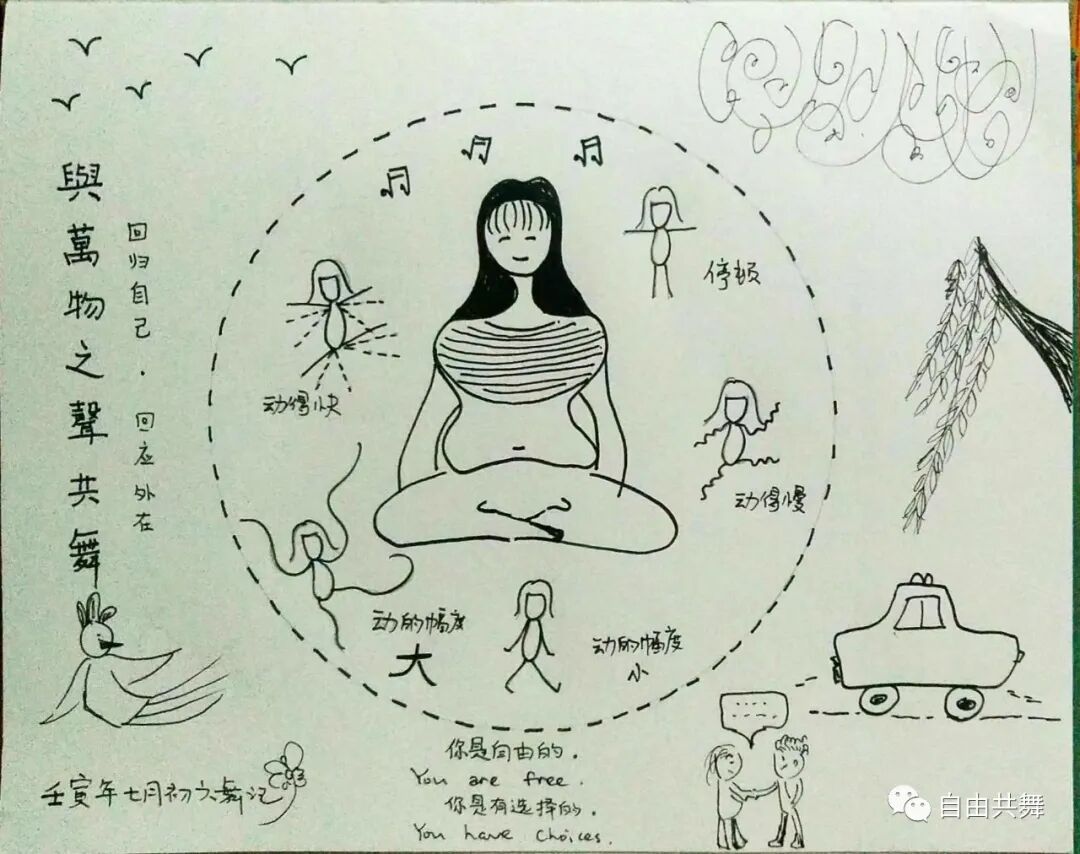 與萬物之聲共舞
回归自己.回应外在
停顿
动得快
动得慢
动的幅度
大
动的幅度
小
你是自由的.
You are free.
你是有选择的.
You have choices.
壬寅年七月初六舞记
自由共舞